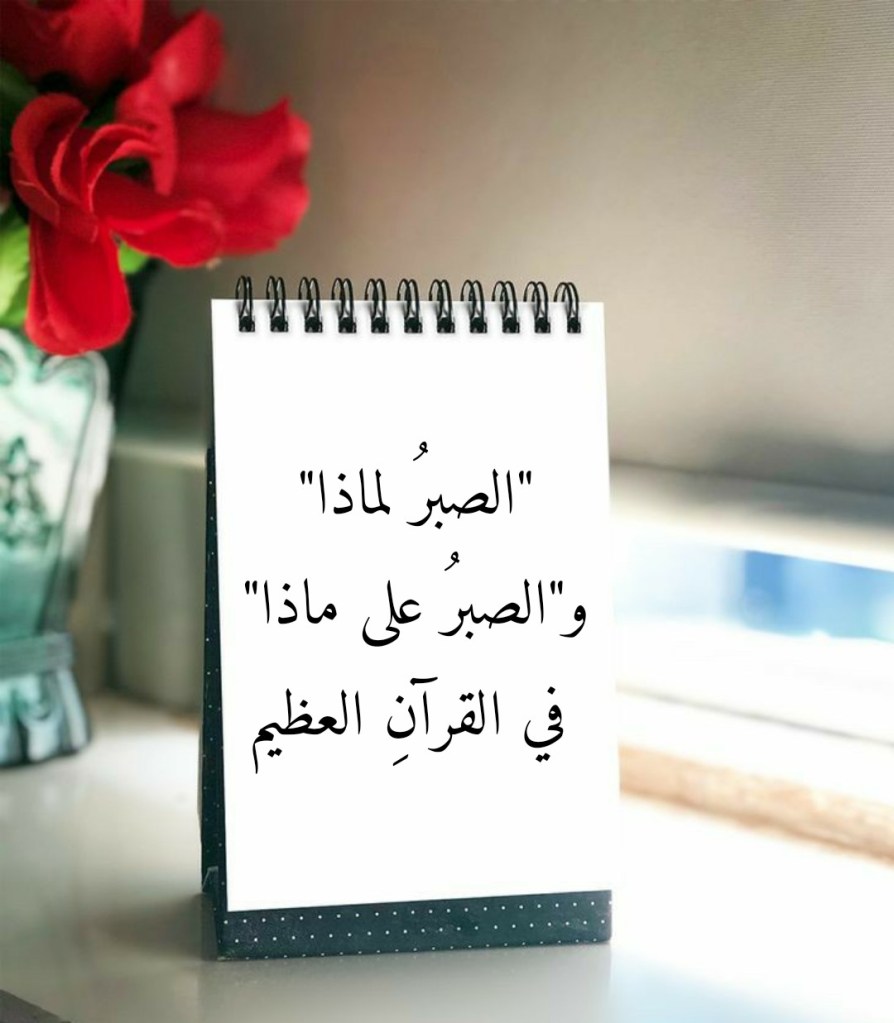 "الصبرُ لماذا"
و"الصبرُ على ماذا"
في القرآنِ العظيم